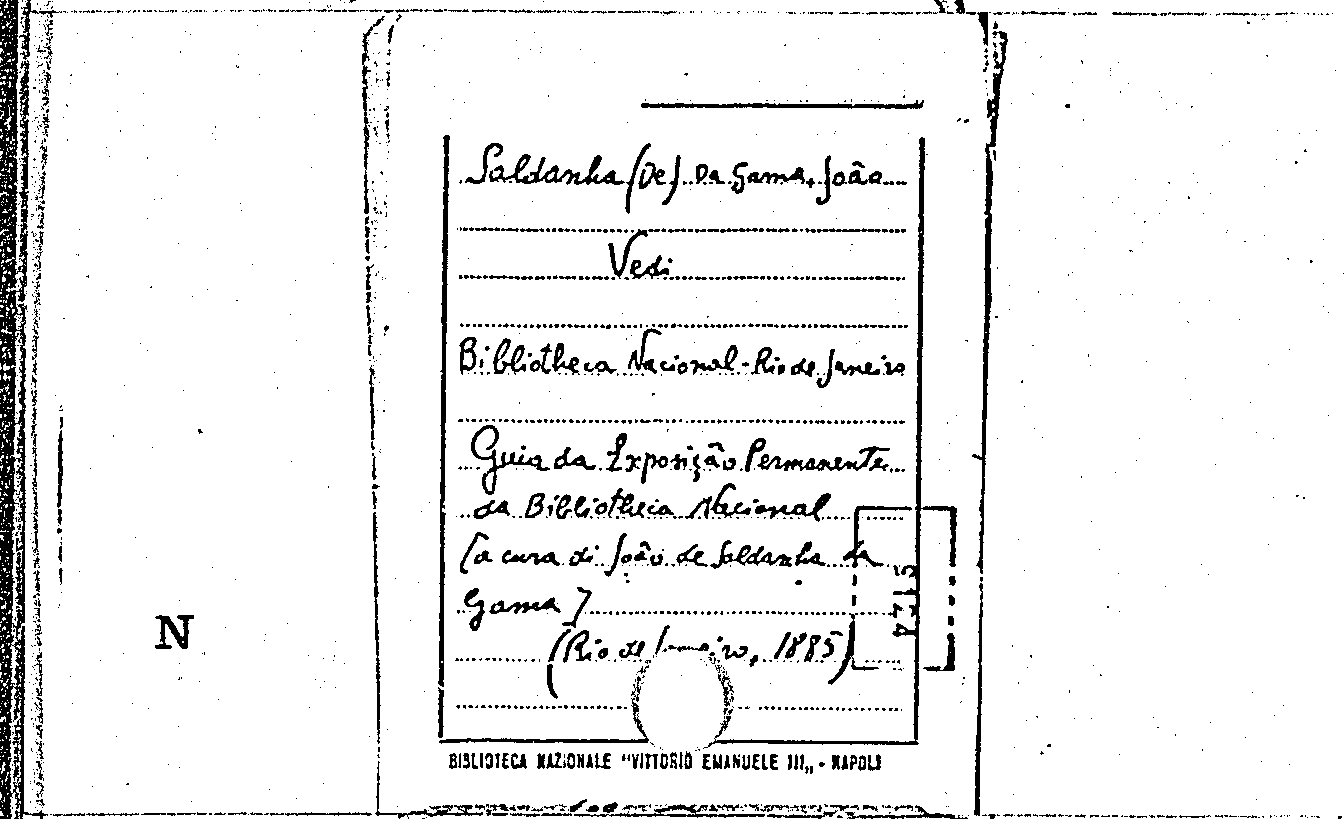 Saldanha (De) Da Gama, João
Vedi
Bibliotheca Nacional - Rio de Janeiro
Guia da Exposição Permanente
da Bibliotheca Nacional
[a cura di João de Saldanha da
Gama]
(Rio de Janeiro, 1885)
N
BIBLIOTECA NAZIONALE "VITTORIO EMANUELE III„ - NAPOLI